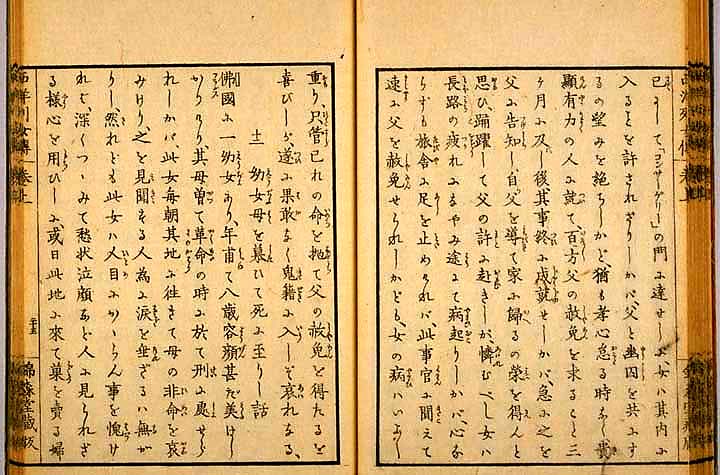 已にして「コンサーゲリー」の門に達せしに女は其内に
入ることを許されざりしかバ、父と幽囚を共にす
るの望みを絶ちしかど、猶も孝心怠る時なく貴
顕有力の人に就て百方父の赦免を求ること三
ヶ月に及し後其事終に成就せしかバ、急ぎ之を
父に告知し自父を導て家に帰るの栄を得んと
思ひ、踊躍して父の許に赴きしが、憐むべし女は
長路の疲れにるやみ途にて病起りしかバ、心な
らずも旅舎に足を止めけれバ、此事官に聞えて
速に父を赦免せられしかども、女の病ハいよ〱
重り、只管己れの命を抛て父の赦免を得たるを
喜びしが遂に果敢なく鬼籍に入しぞ哀れなる、
十二 幼女母を慕いて死に至りし話
佛國に一幼女あり、年甫て八歳容顔甚だ美はし
かりけり、其母曽て革命の時に於て刑に処せら
れしかバ、此女毎朝其地に徃きて母の非命を哀
みけり、之を見聞する人為に涙を垂ざるハ無か
りし、然れども此女ハ人目にかゝらん事を愧け
れバ、深くつゝみて愁状泣顔など人に見られざ
る様心を用ひしに、或日此地に来て菓を売る婦
西洋列女傳 巻之上
二十五
錦森堂蔵版